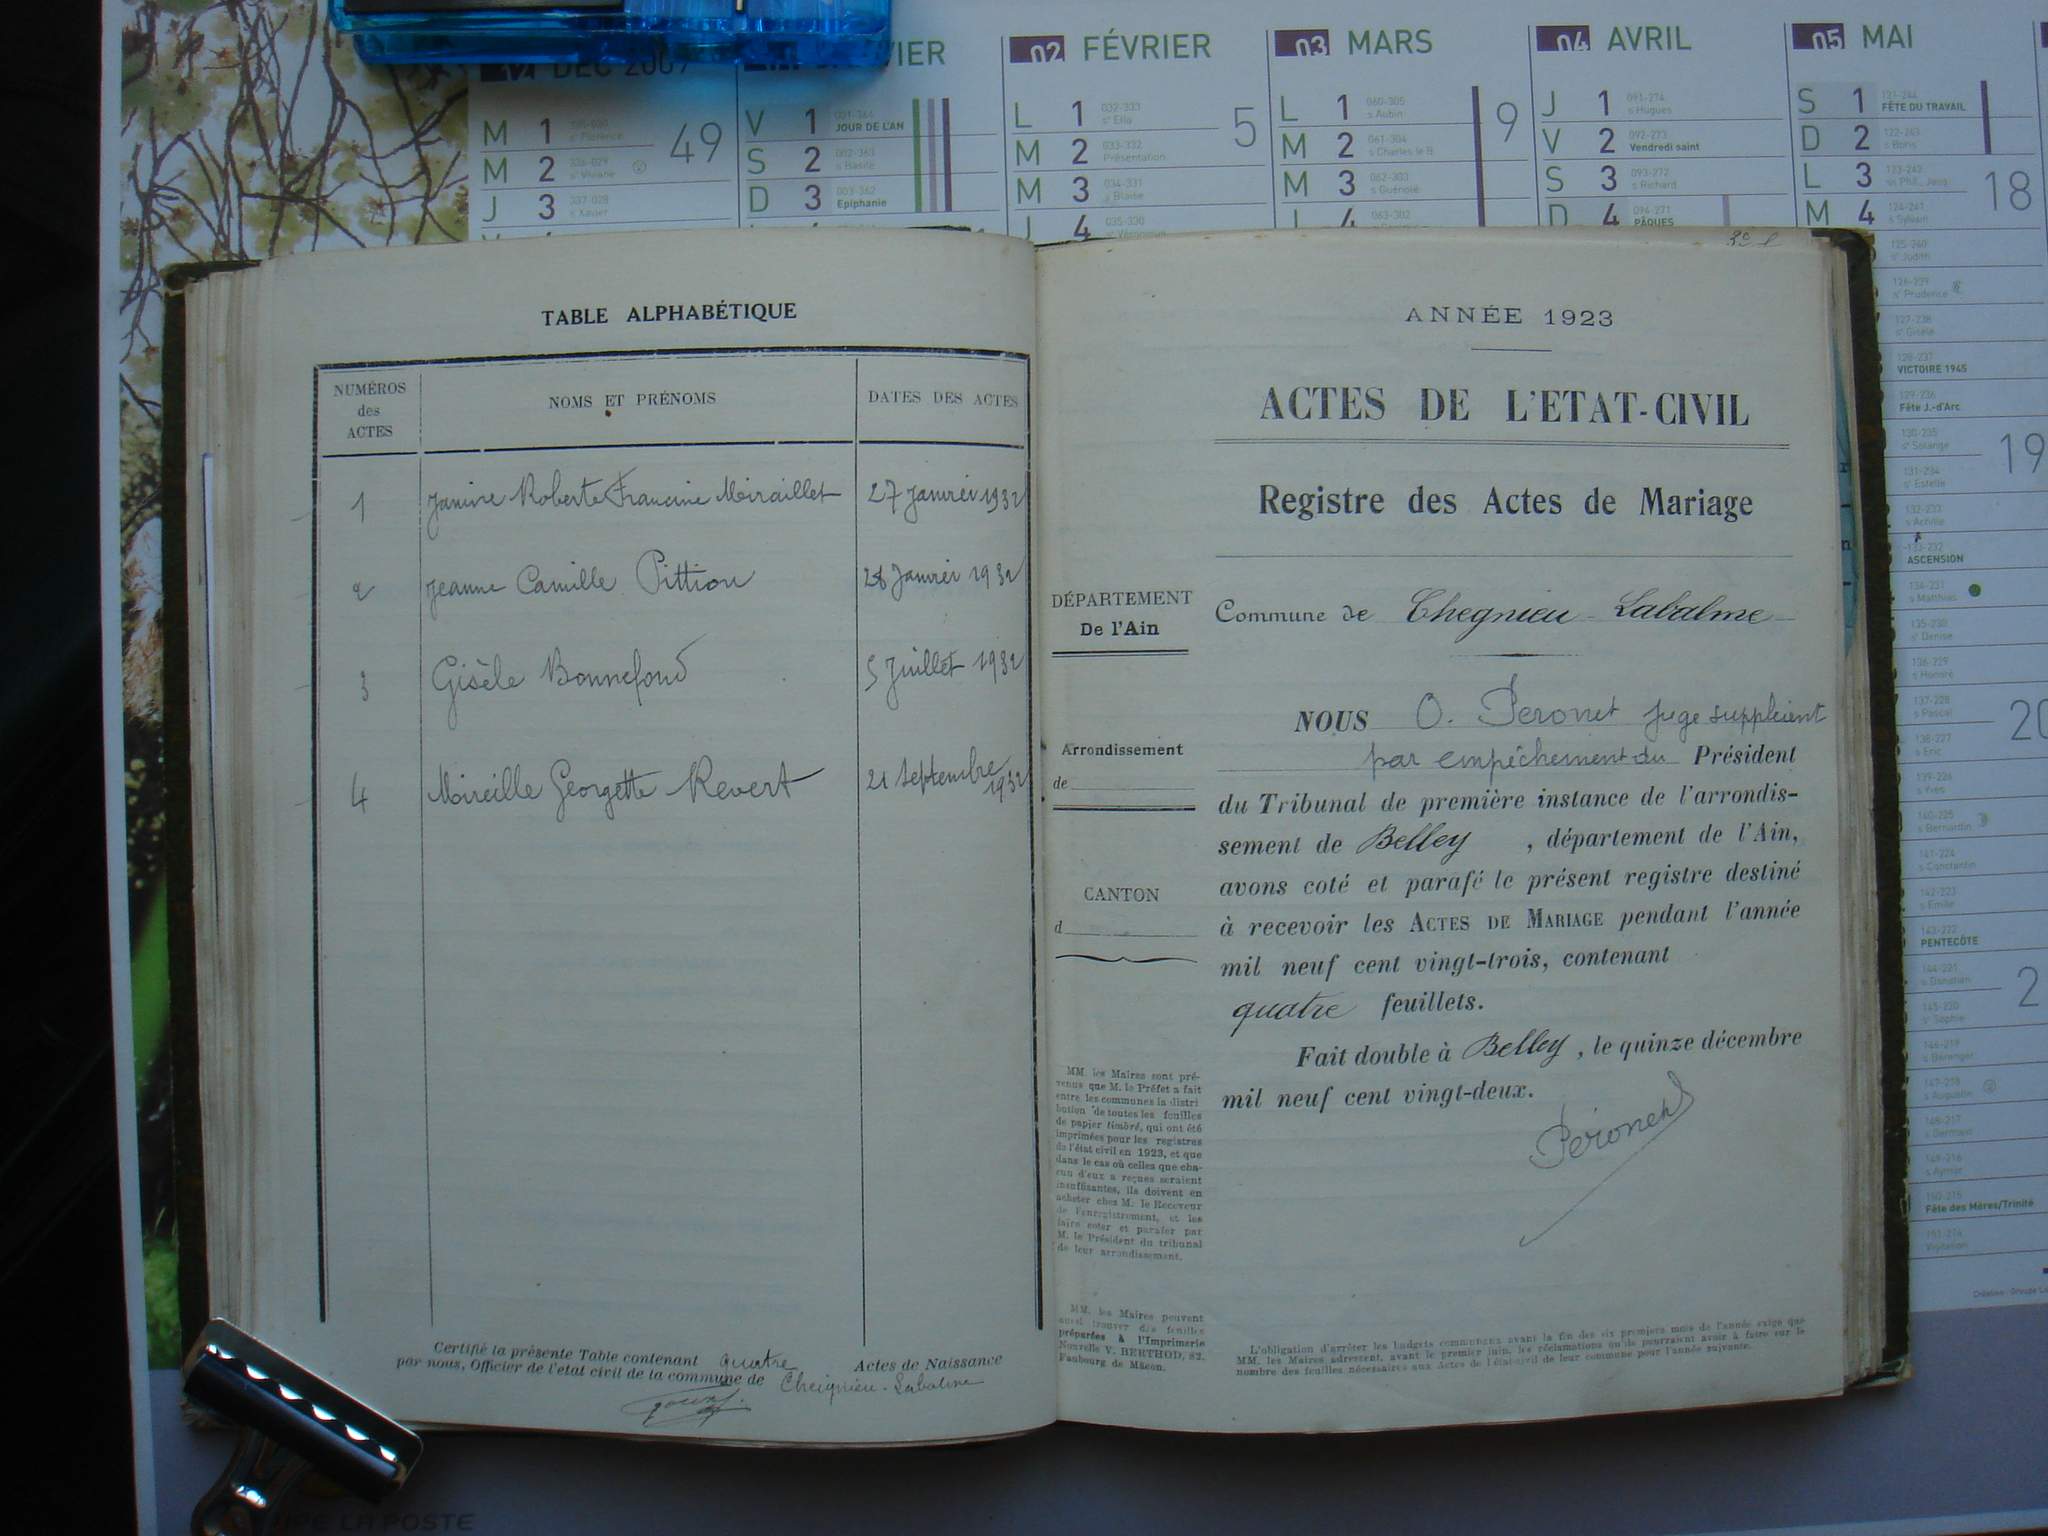 DEC 2009
VIER
02 FÉVRIER
03 MARS
04 AVRIL
05 MAI
M 1
M 2
J 3
49
V 1 JOUR DE L'AN
S 2
D 3 003-362 Epiphanie
L 1 032-333 sᵉ Ella
M 2 033-332 Présentation
M 3 034-331 s Blaise
J 4 035-330
5
L 1 060-305 s Aubin
M 2 061-304 s Charles le B.
M 3 062-303 s Guénolé
4 063-302
9
J 1 091-274 s Hugues
V 2 092-273 Vendredi saint
S 3 093-272 s Richard
D 4 094-271 PÂQUES
S 1 121-244 FÊTE DU TRAVAIL
D 2 122-243 s Boris
L 3
M 4 124-241 s Sylvain
18
125-240 sᵉ Judith
126-239 sᵉ Prudence
127-238 sᵉ Gisèle
128-237 VICTOIRE 1945
129-236 Fête J.-d'Arc
130-235 sᵉ Solange
131-234 sᵉ Estelle
19
132-233 s Achille
133-232 ASCENSION
134-231 s Matthias
135-230 sᵉ Denise
136-229 s Honoré
137-228 s Pascal
138-227 s Eric
139-226 s Yves
140-225 s Bernardin
141-224 s Constantin
142-223 s Emile
143-222 PENTECÔTE
144-221 s Donatien
145-220 sᵉ Sophie
146-219 s Bérenger
147-218 s Augustin
148-217 s Germain
149-216 s Aymar
150-215 Fête des Mères/Trinité
151-214 Visitation
TABLE ALPHABÉTIQUE
NUMÉROS des ACTES
NOMS ET PRÉNOMS
DATES DES ACTES
1 Janine Roberte Francine Miraillet 27 Janvier 1932
2 Jeanne Camille Pittion 28 Janvier 1932
3 Gisèle Bonnefond 5 Juillet 1932
4 Mireille Georgette Revert 21 Septembre 1932
Certifié la présente Table contenant quatre Actes de Naissance
par nous, Officier de l'etat civil de la commune de Cheignieu-Labalme
ANNÉE 1923
ACTES DE L'ETAT-CIVIL
Registre des Actes de Mariage
DÉPARTEMENT
De l'Ain
Commune de Chegnieu-Labalme
Arrondissement
de
CANTON
d
NOUS O. Peronet juge suppléant
par empêchement du Président
du Tribunal de première instance de l'arrondis-
sement de Belley, département de l'Ain,
avons coté et parafé le présent registre destiné
à recevoir les ACTES DE MARIAGE pendant l'année
mil neuf cent vingt-trois, contenant
quatre feuillets.
Fait double à Belley, le quinze décembre
mil neuf cent vingt-deux.
Péronet
MM. les Maires sont pré-
venus que M. le Préfet a fait
entre les communes la distri
bution de toutes les feuilles
de papier timbré, qui ont été
imprimées pour les registres
de l'état civil en 1923, et que
dans le cas où celles que cha-
cun d'eux a reçues seraient
insuffisantes, ils doivent en
acheter chez M. le Receveur
de l'enregistrement, et les
faire coter et parafer par
M. le Président du tribunal
de leur arrondissement.
MM. les Maires peuvent
aussi trouver des feuilles
préparées à l'Imprimerie
Nouvelle V. BERTHOD, 82,
Faubourg de Mâcon.
L'obligation d'arrêter les budgets communaux avant la fin des six premiers mois de l'année exige que
MM. les Maires adressent, avant le premier juin, les réclamations qu'ils pourraient avoir à faire sur le
nombre des feuilles nécessaires aux Actes de l'état-civil de leur commune pour l'année suivante.
LA POSTE